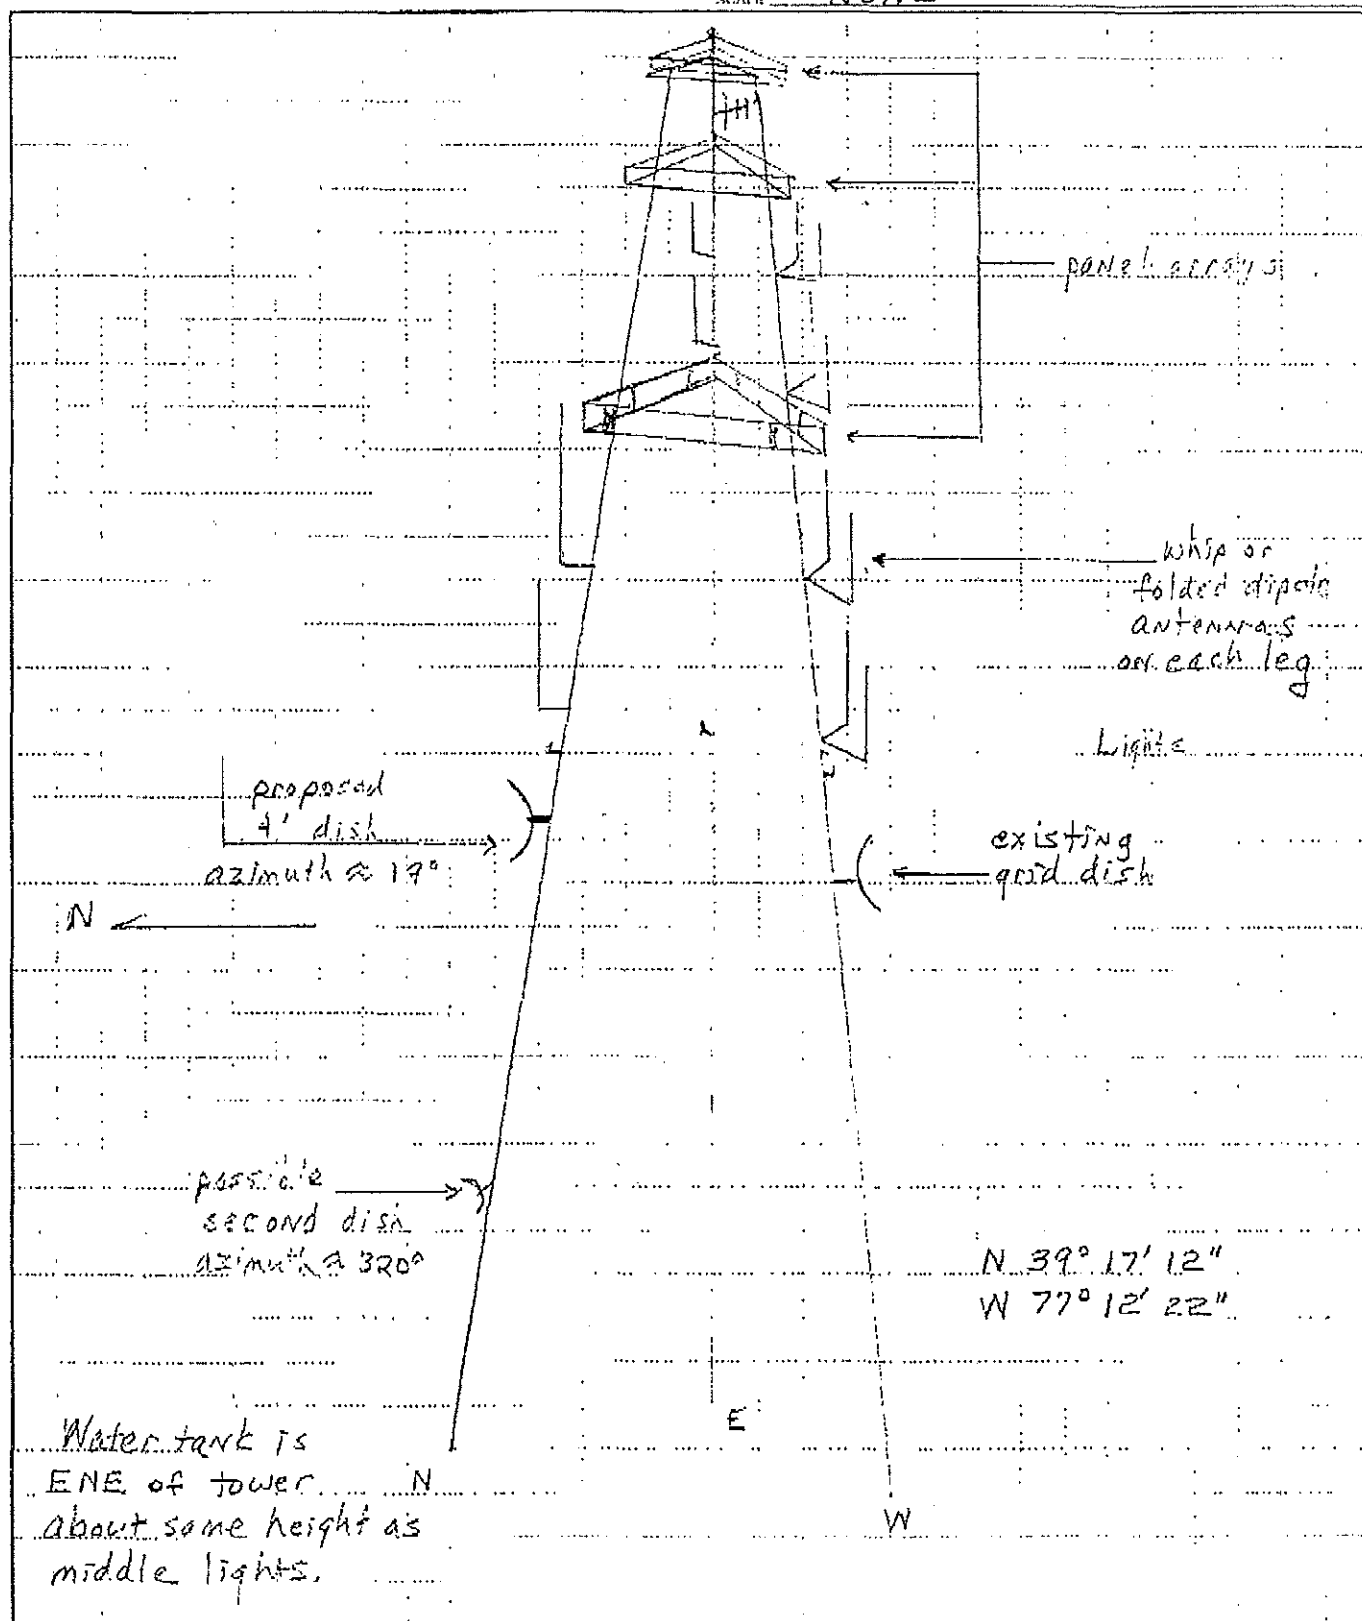 SCALE NONE
panel arrays
whip or
folded dipole
antennas
on each leg
Lights
proposed
4' dish
azimuth ≈ 17°
existing
grid dish
N
possible
second dish
azimuth ≈ 320°
N 39° 17' 12"
W 77° 12' 22"
E
Water tank is
ENE of tower
about same height as
middle lights.
N
W